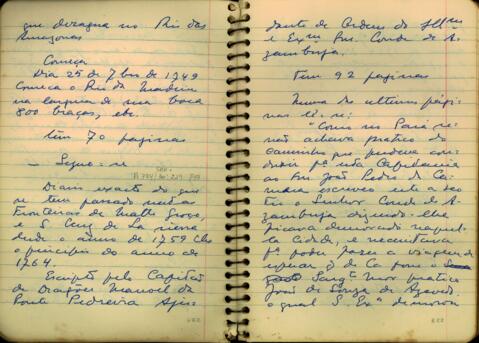 que desagua no Rio das
Amazonas
Começa
Dia 25 de 7bro de 1749
Começa o Rio da Madeira
na largura de sua boca
800 braças, etc.
tem 70 paginas
— Segue-se
Diario exacto do que
se tem passado nestas
Fronteiras de Matto Grosso,
e S. Cruz de La sierra
desde o anno de 1759 até
o principio do anno de
1764.
Escripto pelo Capitão
de Dragões Manoel da
Ponte Pedreira Aju-
dante de Ordens do Illmo
e Exmo Snr. Conde de A-
zambuja.
Tem 92 paginas
Numa das ultimas pági-
nas lê-se:
"Como no Pará se
não achava pratico do
caminho que pudesse con-
duzir pª esta Capitania
ao Snr João Pedro da Ca-
mara escreveo este a seo
tio o Senhor Conde de A-
zambuja dizendo-lhe
ficava demorado naquel-
la Cidade, e necessitava
pª poder fazer a viagem de
separar qº de Ca fosse o
Sargto Mor pratico
José de Souza de Azevedo,
o qual S. Exª demorou